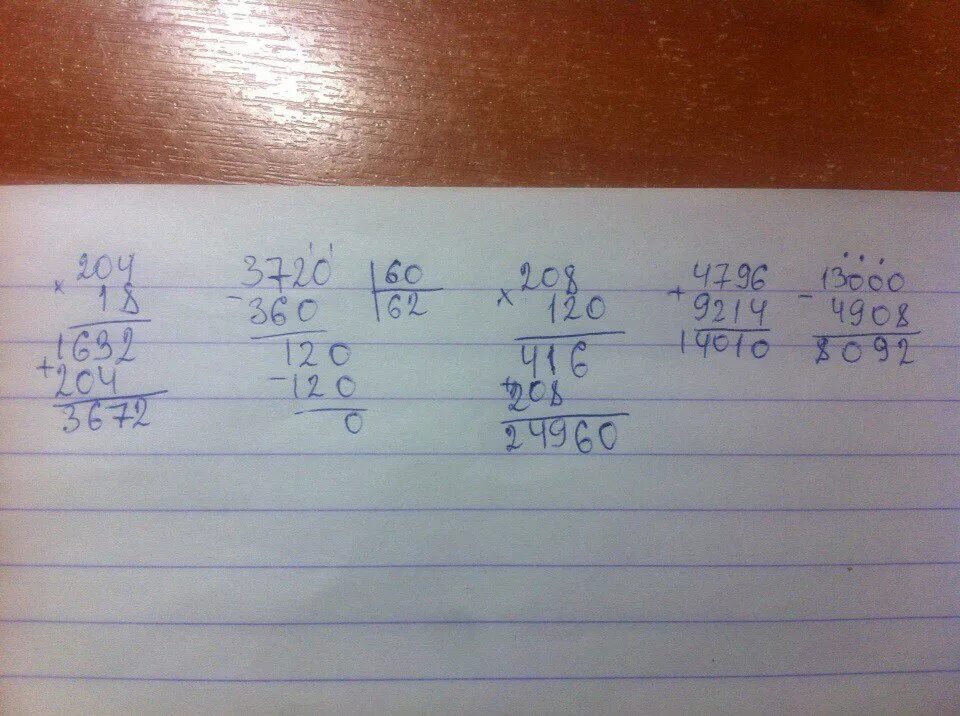 204
× 18
1632
+ 204
3672
3720 | 60
- 360 | 62
120
- 120
0
208
× 120
416
+ 208
24960
4796
+ 9214
14010
- 13000
4908
8092